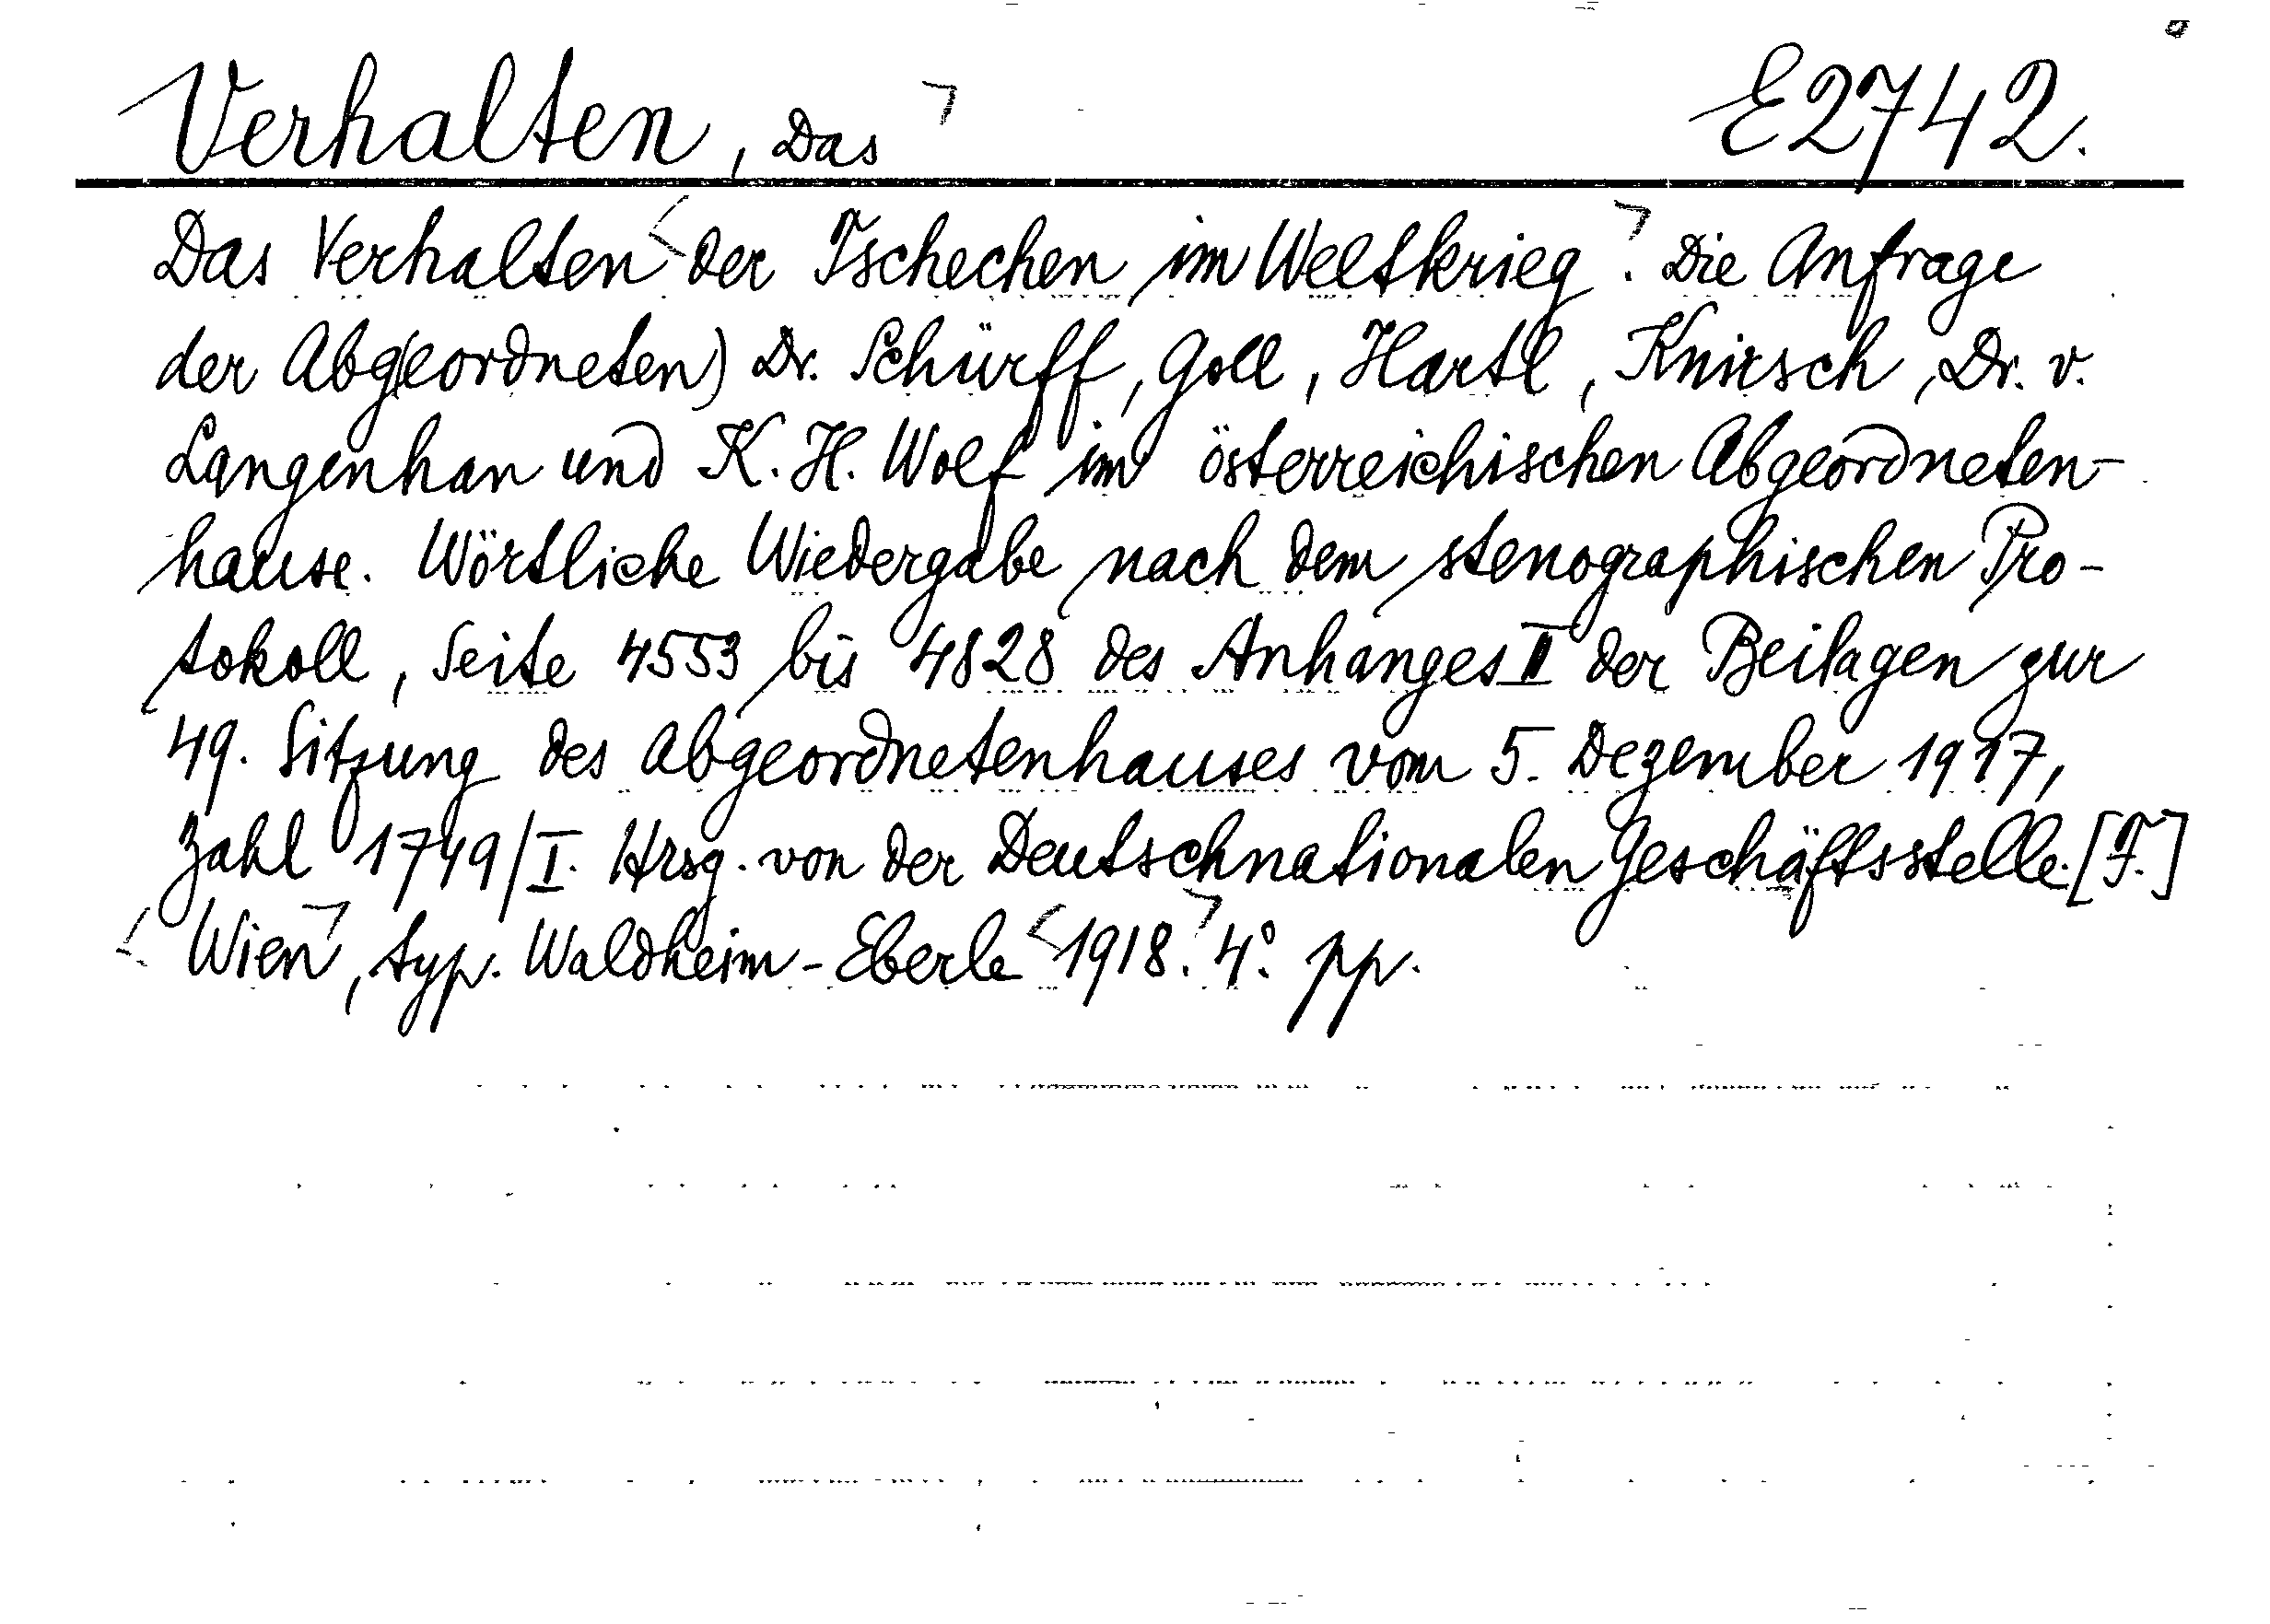 Verhalten, Das E2742.
Das Verhalten der Tschechen im Weltkrieg. Die Anfrage
der Abg(eordneten) Dr. Schürff, Goll, Hartl, Knirsch, Dr. v.
Langenhan und K. H. Wolf im österreichischen Abgeordneten-
hause. Wörtliche Wiedergabe nach dem stenographischen Pro-
tokoll, Seite 4553 bis 4828 des Anhanges II der Beilagen zur
49. Sitzung des Abgeordnetenhauses vom 5. Dezember 1917,
Zahl 1749/I. Hrsg. von der Deutschnationalen Geschäftsstelle. [F.]
Wien, typ. Waldheim-Eberle 1918. 4°. pp.